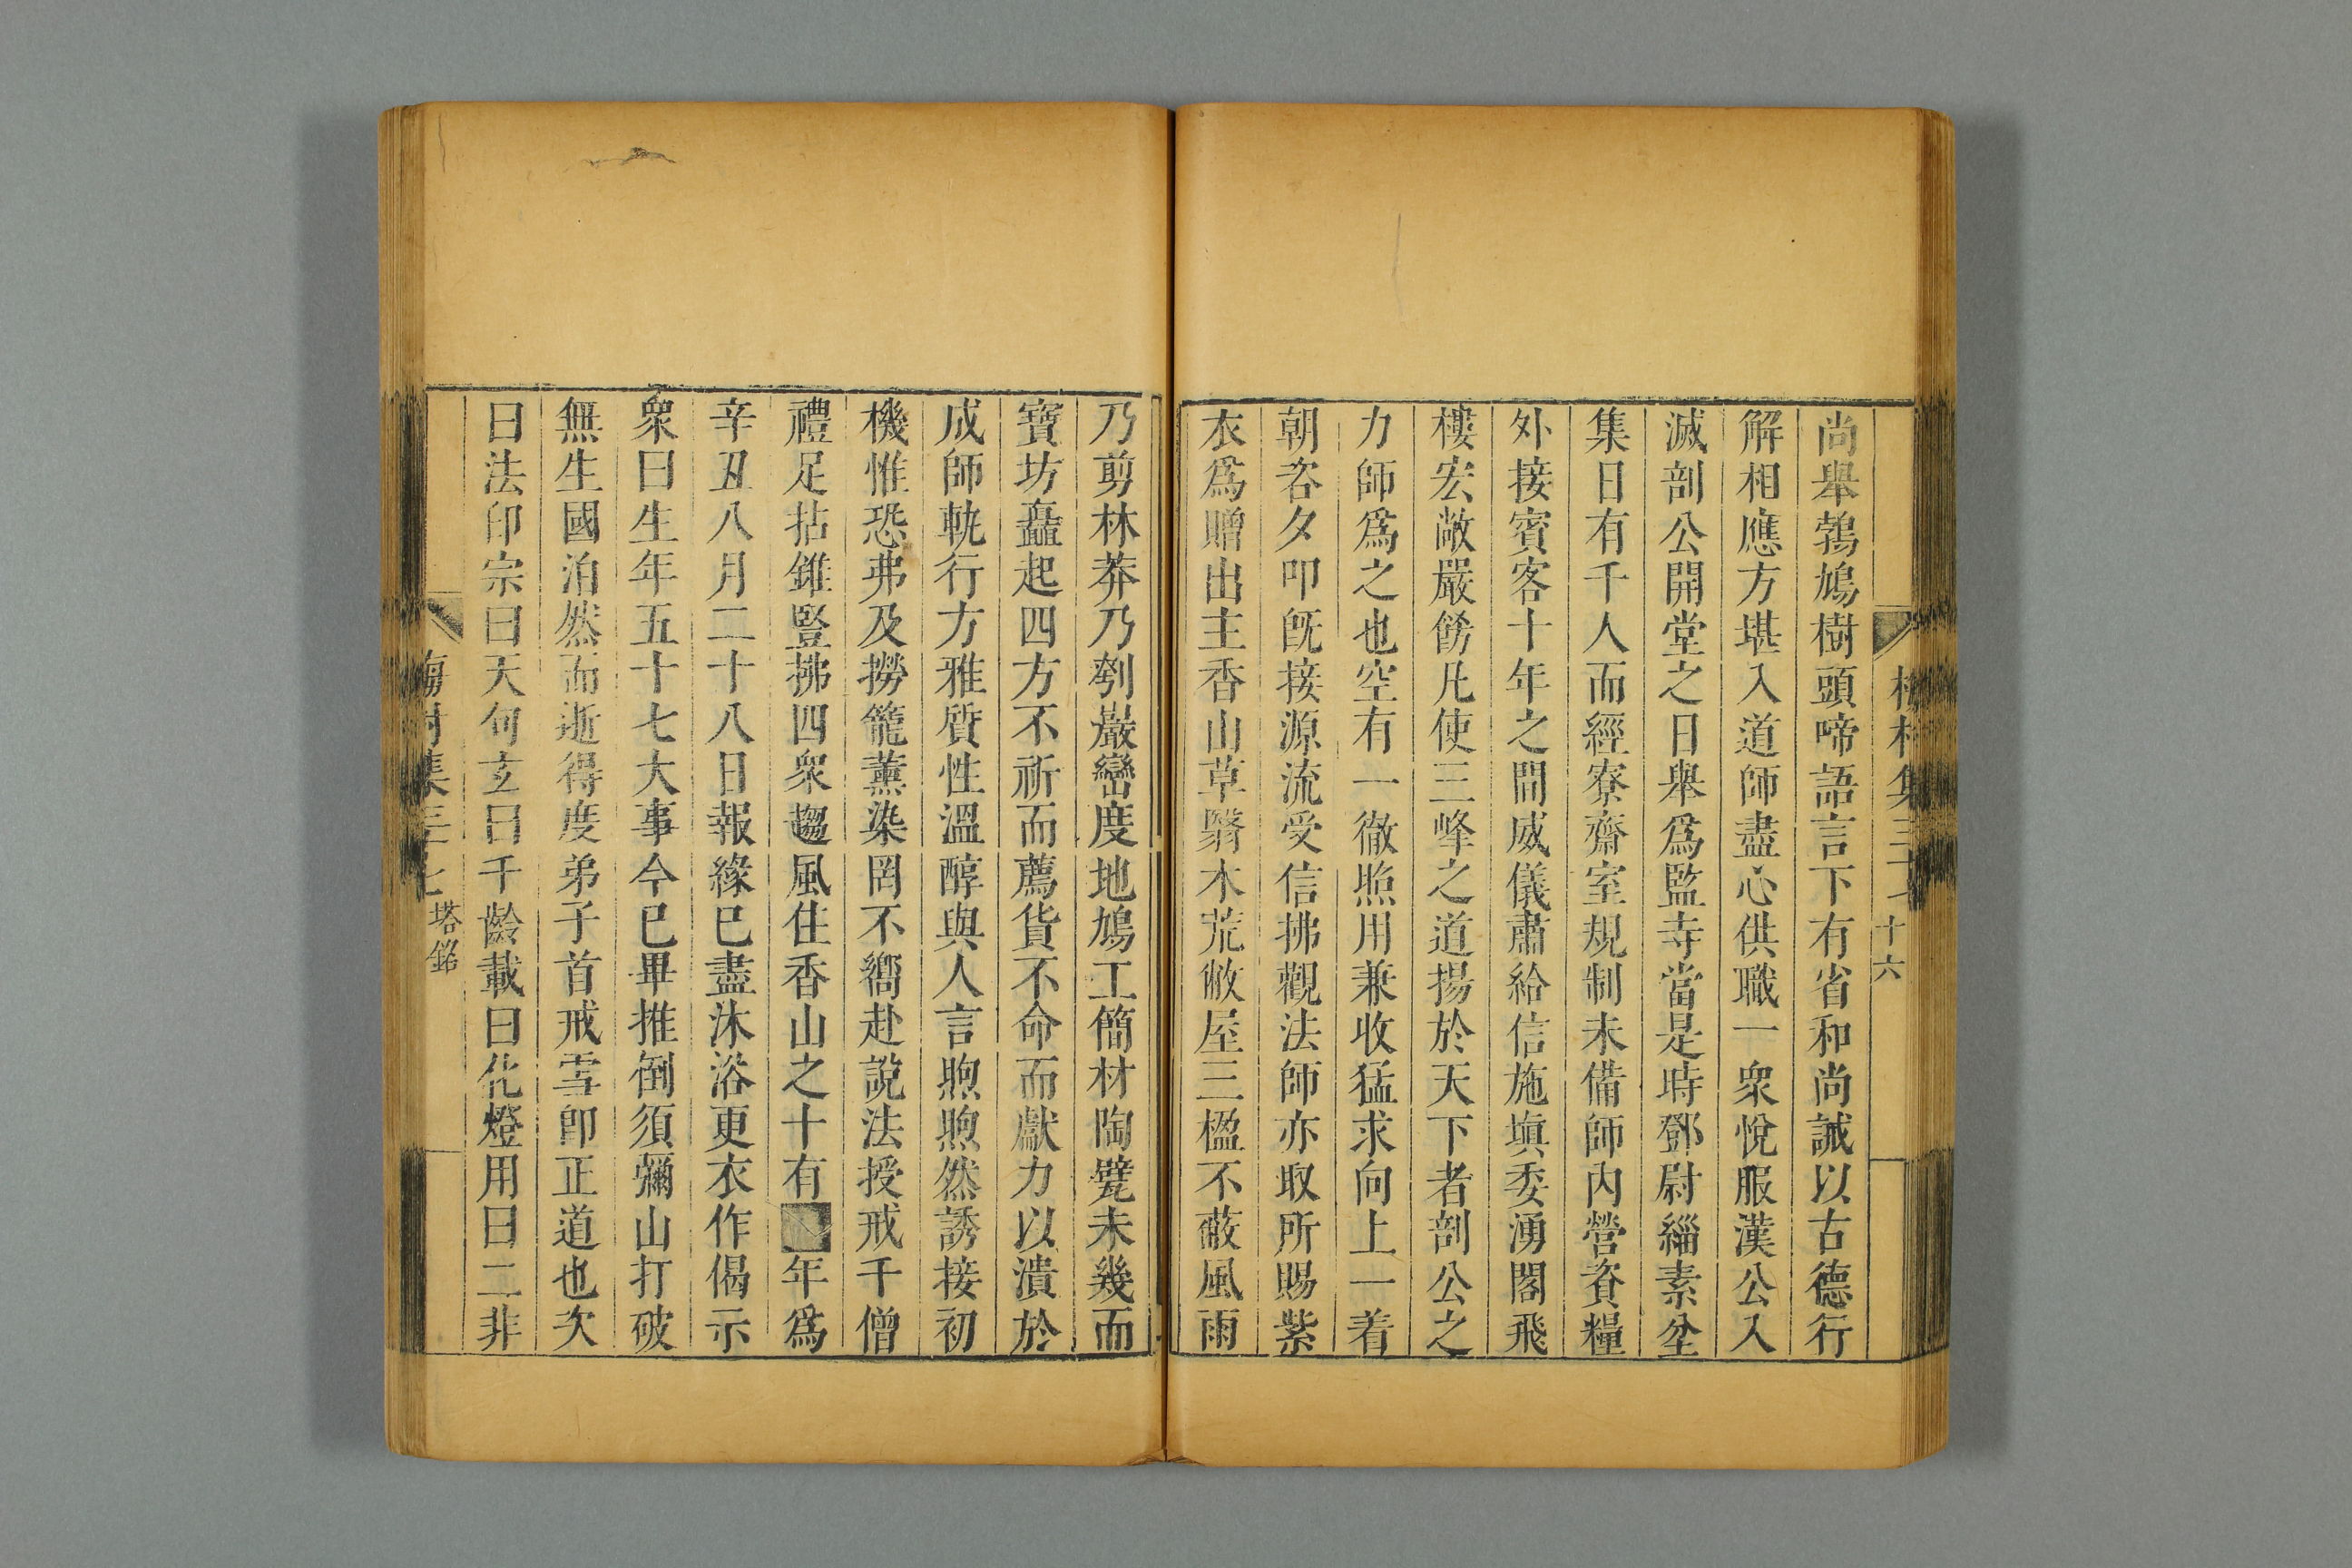 尚舉鵓鳩樹頭啼語言下有省和尚誡以古德行
解相應方堪入道師盡心供職一衆悅服漢公入
滅剖公開堂之日舉爲監寺當是時鄧尉緇素坌
集日有千人而經寮齋室規制未備師內營資糧
外接賓客十年之間威儀肅給信施塡委湧閣飛
樓宏敞嚴餝凡使三峰之道揚於天下者剖公之
力師爲之也空有一徹照用兼收猛求向上一着
朝咨夕叩旣接源流受信拂觀法師亦取所賜紫
衣爲贈出主香山草翳木荒敝屋三楹不蔽風雨
十六
乃剪林莽乃刳巖巒度地鳩工簡材陶甓未幾而
寶坊矗起四方不祈而薦貨不命而獻力以潰於
成師軌行方雅質性溫醇與人言煦煦然誘接初
機惟恐弗及撈籠薰染罔不嚮赴說法授戒千僧
禮足拈錐豎拂四衆趨風住香山之十有年爲
辛丑八月二十八日報緣巳盡沐浴更衣作偈示
衆曰生年五十七大事今巳畢推倒須彌山打破
無生國泊然而逝得度弟子首戒雪卽正道也次
曰法印宗曰天句玄曰千齡載曰化燈用曰二非
塔銘